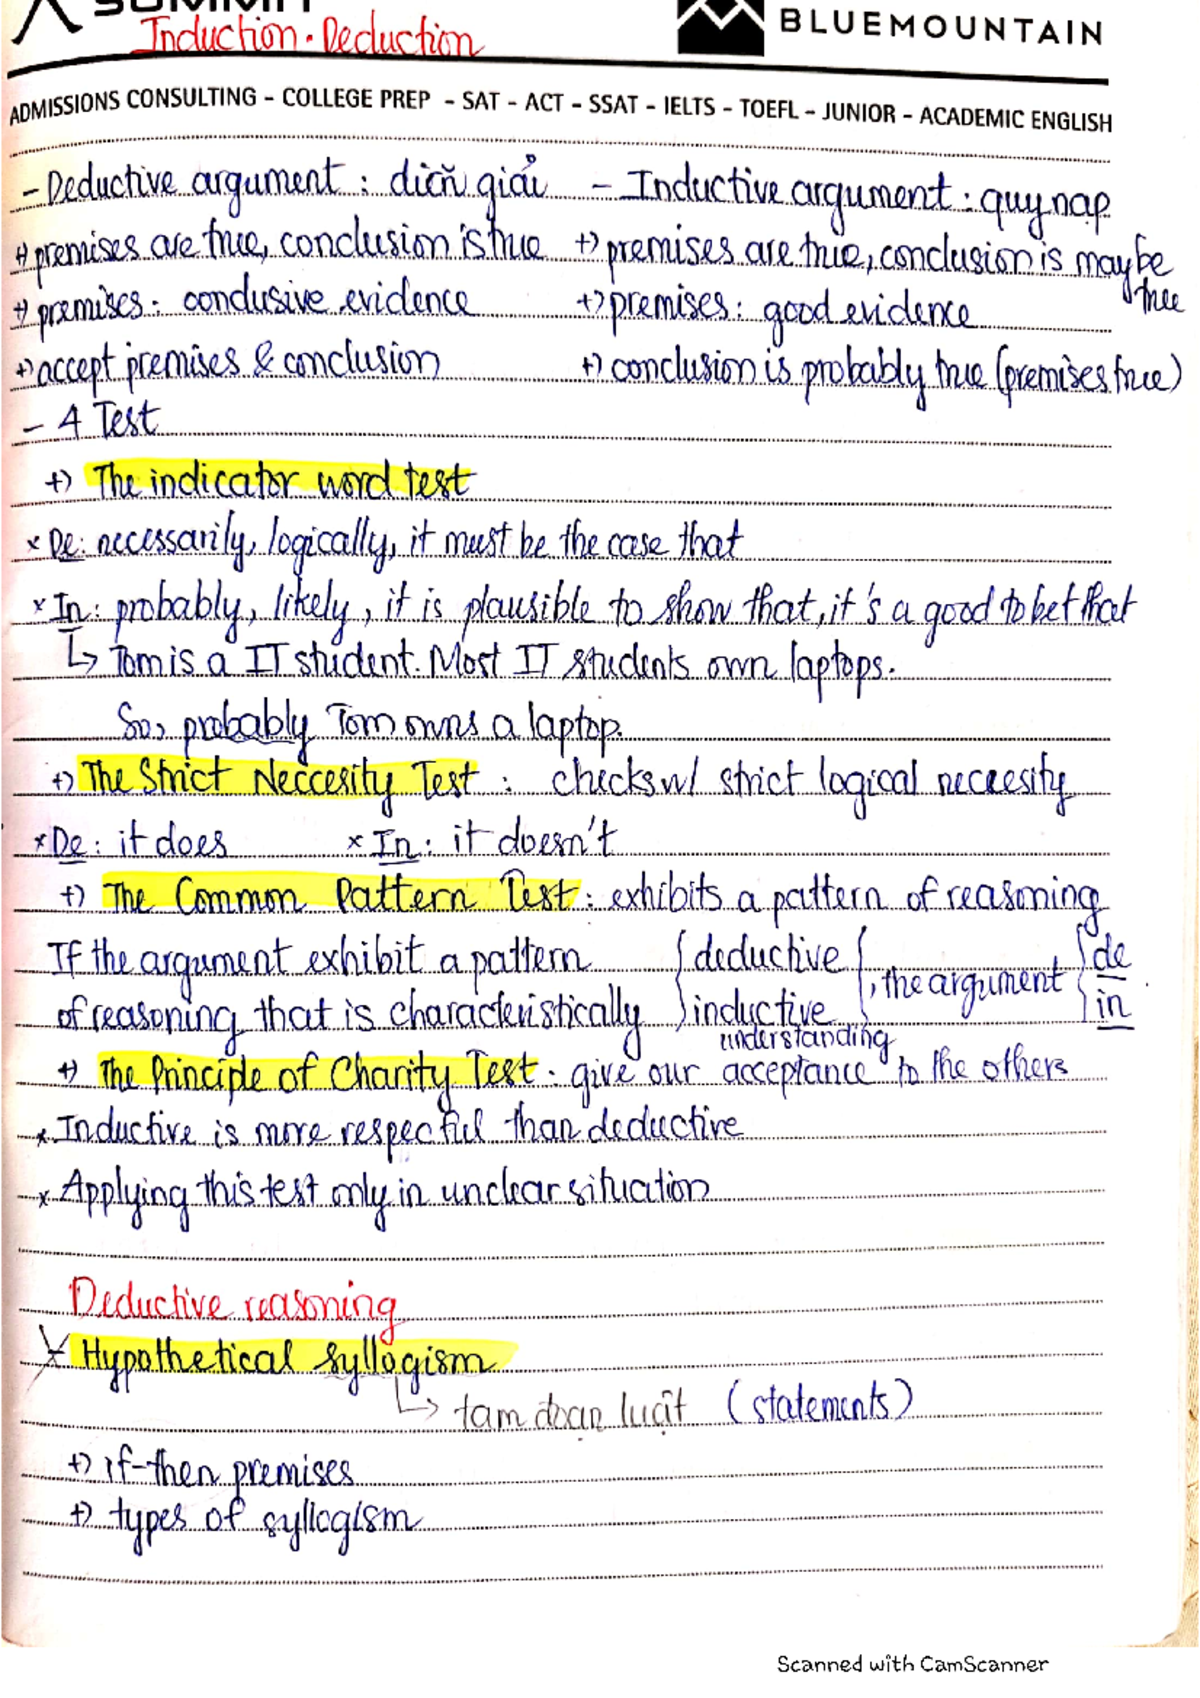 SUMMIT
Induction · Deduction
BLUEMOUNTAIN
ADMISSIONS CONSULTING – COLLEGE PREP – SAT – ACT – SSAT – IELTS – TOEFL – JUNIOR – ACADEMIC ENGLISH
- Deductive argument : diễn giải - Inductive argument : quy nạp
+) premises are true, conclusion is true +) premises are true, conclusion is maybe true
+) premises : conclusive evidence +) premises : good evidence
+) accept premises & conclusion +) conclusion is probably true (premises true)
- 4 Test
+) The indicator word test
x De: necessarily, logically, it must be the case that
x In: probably, likely, it is plausible to show that, it's a good to bet that
↳ Tom is a IT student. Most IT students own laptops.
So, probably Tom owns a laptop.
+) The Strict Neccesity Test : checks w/ strict logical necessity
x De: it does x In: it doesn't
+) The Common Pattern Test : exhibits a pattern of reasoning
If the argument exhibit a pattern { deductive {, the argument { de
of reasoning that is characteristically { inductive { in
understanding
+) The Principle of Charity Test : give our acceptance to the others
x Inductive is more respectful than deductive
x Applying this test only in unclear situation
Deductive reasoning
Hypothetical syllogism
↳ tam đoạn luật (statements)
+) if-then premises
+) types of syllogism
Scanned with CamScanner